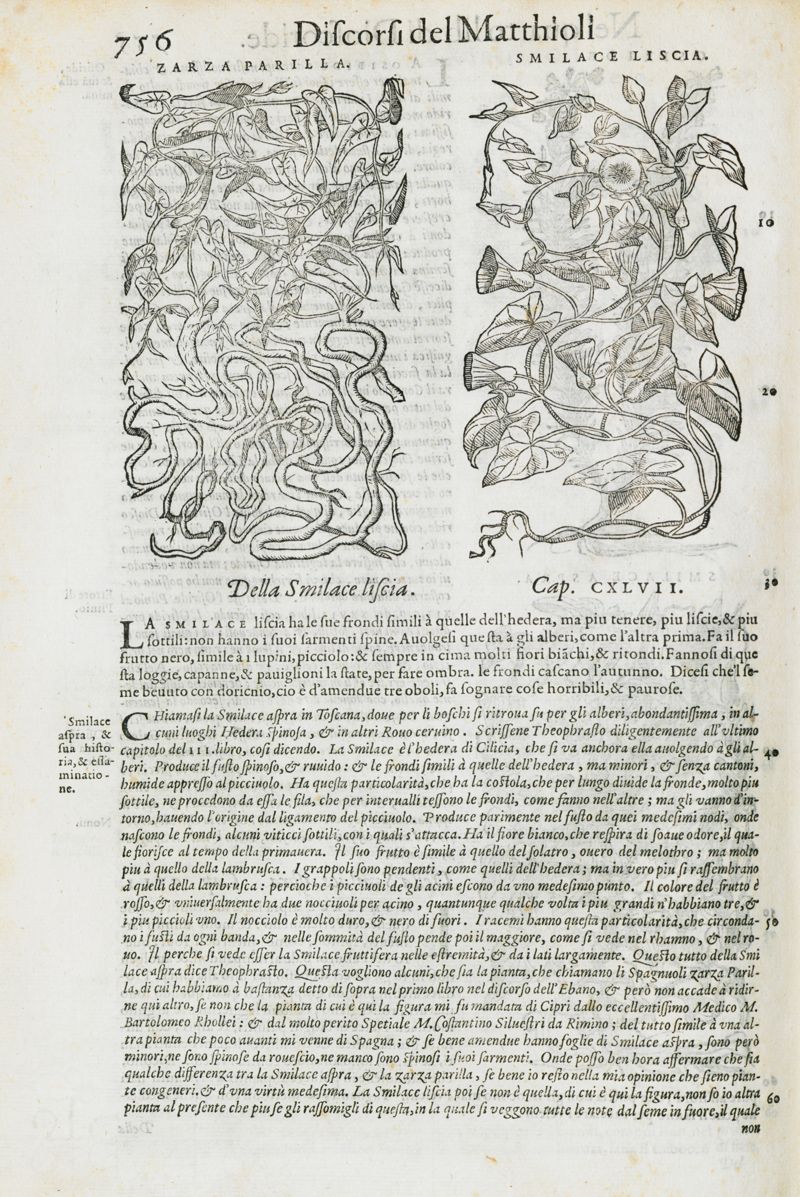 756 Diſcorſi del Matthioli
ZARZA PARILLA.
SMILACE LISCIA.
10
20
Della Smilace liſcia. Cap. CXLVII.
30
LA SMILACE liſcia ha le ſue frondi ſimili à quelle dell'hedera, ma piu tenere, piu liſcie, & piu
ſottili: non hanno i ſuoi ſarmenti ſpine. Auolgeſi queſta à gli alberi, come l'altra prima. Fa il ſuo
frutto nero, ſimile à i lupini, picciolo: & ſempre in cima molti fiori biāchi, & ritondi. Fannoſi di que
ſta loggie, capanne, & pauiglioni la ſtate, per fare ombra. le frondi caſcano l'autunno. Diceſi che'l ſe-
me beuuto con doricnio, cio è d'amendue tre oboli, fa ſognare coſe horribili, & pauroſe.
Smilace
aſpra, &
ſua hiſto-
ria, & eſſa-
minatio-
ne.
CHiamaſi la Smilace aſpra in Toſcana, doue per li boſchi ſi ritroua ſu per gli alberi, abondantiſſima, in al-
cuni luoghi Hedera ſpinoſa, & in altri Rouo ceruino. Scriſſene Theophraſto diligentemente all'vltimo
capitolo del III. libro, coſi dicendo. La Smilace è l'hedera di Cilicia, che ſi va anchora ella auolgendo à gli al-
40
beri. Produce il fuſto ſpinoſo, & ruuido: & le frondi ſimili à quelle dell'hedera, ma minori, & ſenza cantoni,
humide appreſſo al picciuolo. Ha queſta particolarità, che ha la coſtola, che per lungo diuide la fronde, molto piu
ſottile, ne procedono da eſſa le fila, che per interualli teſſono le frondi, come fanno nell'altre; ma gli vanno d'in-
torno, hauendo l'origine dal ligamento del picciuolo. Produce parimente nel fuſto da quei medeſimi nodi, onde
naſcono le frondi, alcuni viticci ſottili, con i quali s'attacca. Ha il fiore bianco, che reſpira di ſoaue odore, il qua-
le fioriſce al tempo della primauera. Il ſuo frutto è ſimile à quello del ſolatro, ouero del melothro; ma molto
piu à quello della lambruſca. I grappoli ſono pendenti, come quelli dell'hedera; ma in vero piu ſi raſſembrano
à quelli della lambruſca: percioche i picciuoli de gli acini eſcono da vno medeſimo punto. Il colore del frutto è
roſſo, & vniuerſalmente ha due nocciuoli per acino, quantunque qualche volta i piu grandi n'habbiano tre, &
i piu piccioli vno. Il nocciolo è molto duro, & nero di fuori. I racemi hanno queſta particolarità, che circonda-
50
no i fuſti da ogni banda, & nelle ſommità del fuſto pende poi il maggiore, come ſi vede nel rhamno, & nel ro-
uo. Il perche ſi vede eſſer la Smilace fruttifera nelle eſtremità, & da i lati largamente. Queſto tutto della Smi
lace aſpra dice Theophraſto. Queſta vogliono alcuni, che ſia la pianta, che chiamano li Spagnuoli zarza Paril-
la, di cui habbiamo à baſtanza detto di ſopra nel primo libro nel diſcorſo dell'Ebano, & però non accade à ridir-
ne qui altro, ſe non che la pianta di cui è qui la figura mi fu mandata di Cipri dallo eccellentiſſimo Medico M.
Bartolomeo Rhollei: & dal molto perito Spetiale M. Coſtantino Silueſtri da Rimino; del tutto ſimile à vna al-
tra pianta che poco auanti mi venne di Spagna; & ſe bene amendue hanno foglie di Smilace aſpra, ſono però
minori, ne ſono ſpinoſe da roueſcio, ne manco ſono ſpinoſi i ſuoi ſarmenti. Onde poſſo ben hora affermare che ſia
qualche differenza tra la Smilace aſpra, & la zarza parilla, ſe bene io reſto nella mia opinione che ſieno pian-
te congeneri, & d'vna virtù medeſima. La Smilace liſcia poi ſe non è quella, di cui è qui la figura, non ſo io altra
60
pianta al preſente che piu ſe gli raſſomigli di queſta, in la quale ſi veggono tutte le note dal ſeme in fuore, il quale
non